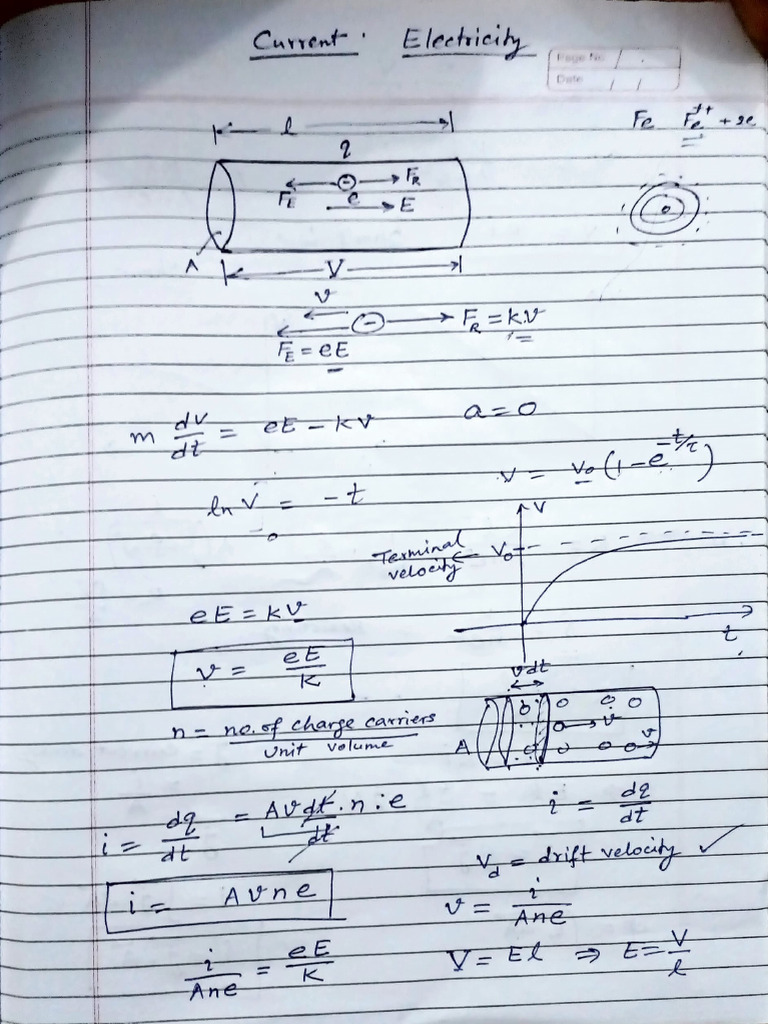 Current Electricity
Page No.
Date
l
q
Fe Fe⁺⁺ + 2e
F_E e F_R
E
A
V
v
F_R = kv
F_E = eE
m dv/dt = eE − kv a = 0
v = v₀ (1 − e^(−t/τ))
ln v = −t
V
Terminal velocity
V₀
t
eE = kv
v = eE/K
vdt
n = no. of charge carriers / unit volume
A
v
v
i = dq/dt = Avdt.n.e/dt
i = dq/dt
V_d = drift velocity ✓
i = Avne
v = i/Ane
i/Ane = eE/K
V = El ⇒ E = V/l